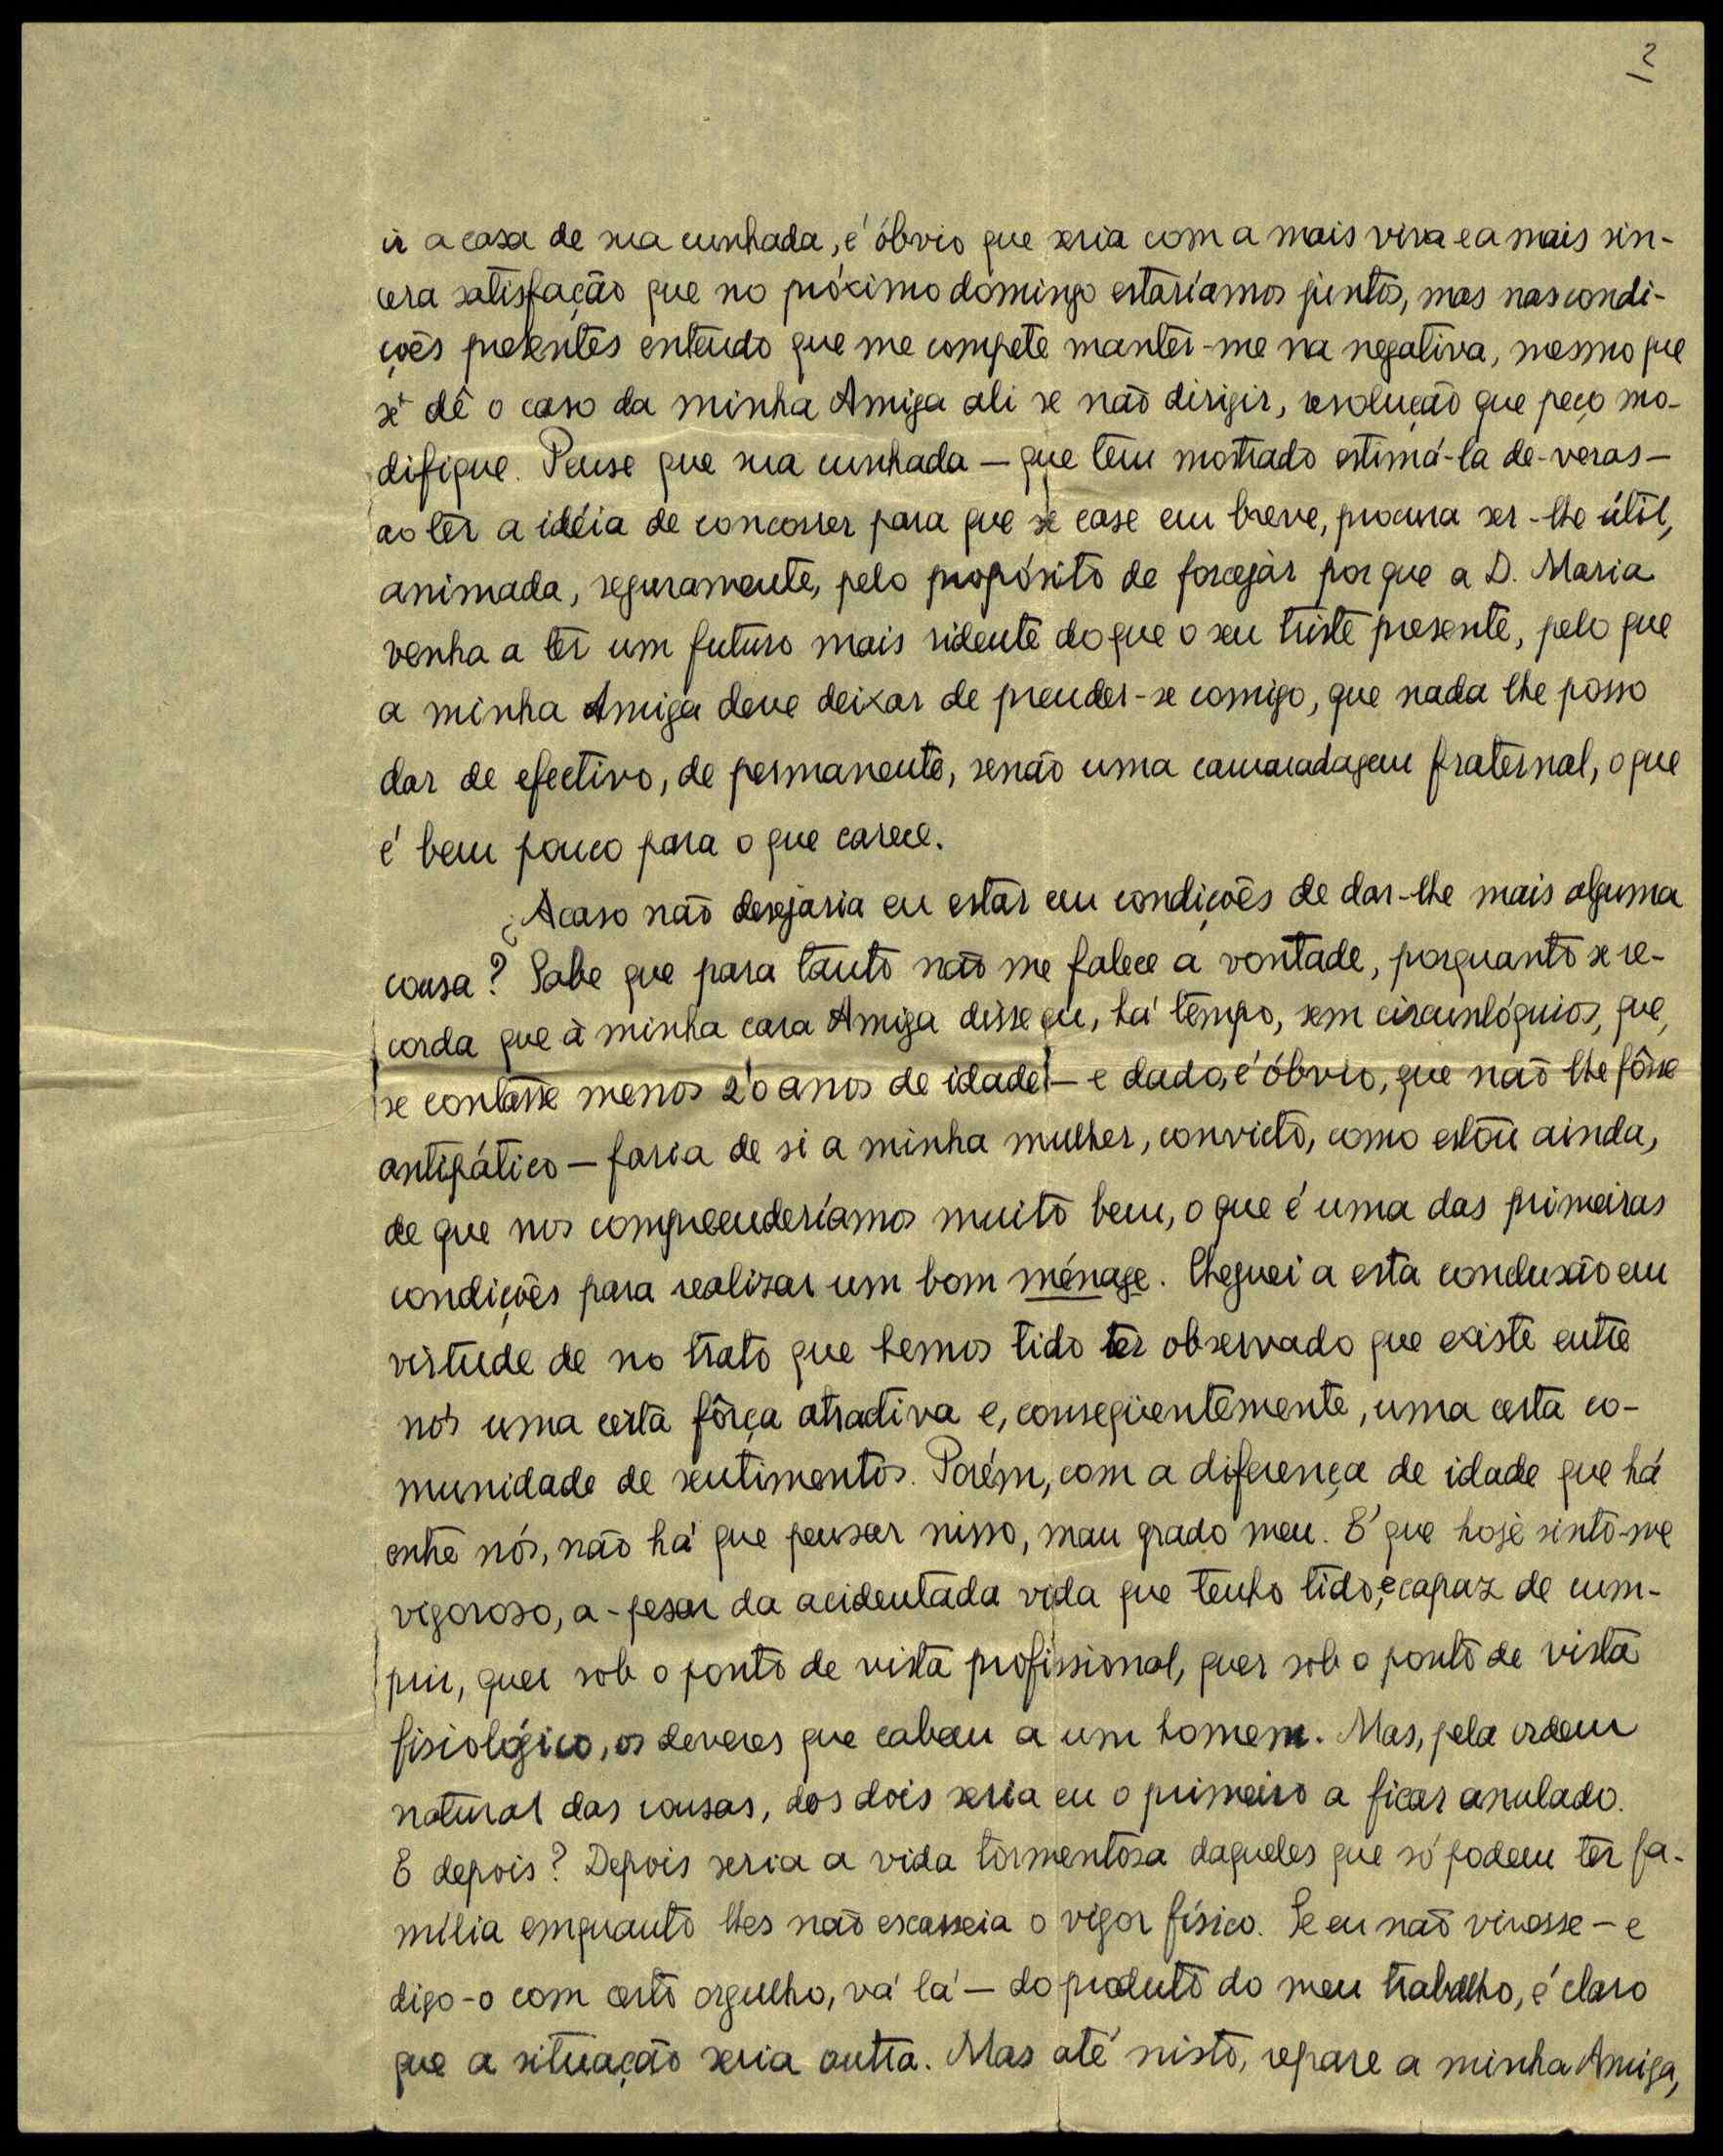 2
ir a casa de sua cunhada, é óbvio que seria com a mais viva e a mais sin-
cera satisfação que no próximo domingo estaríamos juntos, mas nas condi-
ções presentes entendo que me compete manter-me na negativa, mesmo que
se dê o caso da minha Amiga ali se não dirigir, resolução que peço mo-
difique. Pense que sua cunhada — que tem mostrado estimá-la de-veras —
ao ter a idéia de concorrer para que se case em breve, procura ser-lhe útil,
animada, seguramente, pelo propósito de forcejar porque a D. Maria
venha a ter um futuro mais ridente do que o seu triste presente, pelo que
a minha Amiga deve deixar de prender-se comigo, que nada lhe posso
dar de efectivo, de permanente, senão uma camaradagem fraternal, o que
é bem pouco para o que carece.
¿Acaso não desejaria eu estar em condições de dar-lhe mais alguma
cousa? Sabe que para tanto não me falece a vontade, porquanto se re-
corda que à minha cara Amiga disse eu, há tempo, sem circunlóquios, que,
se contasse menos 20 anos de idade — e dado, é óbvio, que não lhe fôsse
antipático — faria de si a minha mulher, convicto, como estou ainda,
de que nos compreenderíamos muito bem, o que é uma das primeiras
condições para realizar um bom ménage. Cheguei a esta conclusão em
virtude de no trato que hemos tido ter observado que existe entre
nós uma certa fôrça atractiva e, conseqüentemente, uma certa co-
munidade de sentimentos. Porém, com a diferença de idade que há
entre nós, não há que pensar nisso, mau grado meu. É que hoje sinto-me
vigoroso, a-pesar da acidentada vida que tenho tido, e capaz de cum-
prir, quer sob o ponto de vista profissional, quer sob o ponto de vista
fisiológico, os deveres que cabem a um homem. Mas, pela ordem
natural das cousas, dos dois seria eu o primeiro a ficar anulado.
E depois? Depois seria a vida tormentosa daqueles que só podem ter fa-
mília emquanto lhes não escasseia o vigor físico. Se eu não vivesse — e
digo-o com certo orgulho, vá lá — do produto do meu trabalho, é claro
que a situação seria outra. Mas até nisto, repare a minha Amiga,